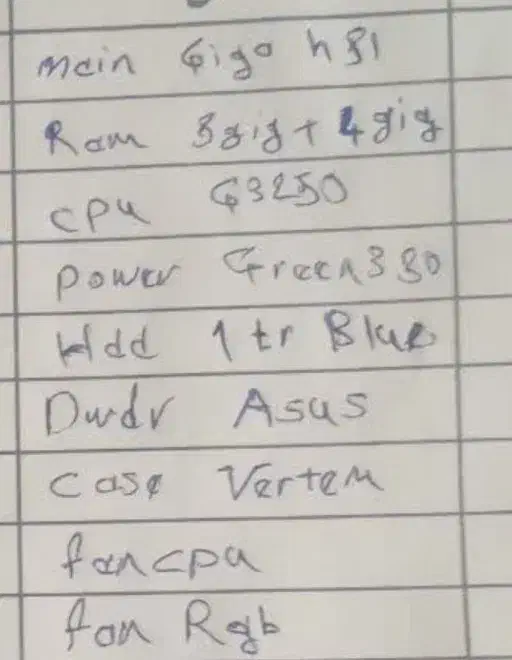 Main Giga h81
Ram 8gig + 4gig
cpu G3250
power Green 330
Hdd 1 tr Blue
Dvdr Asus
case Vertem
fan cpu
fan Rgb